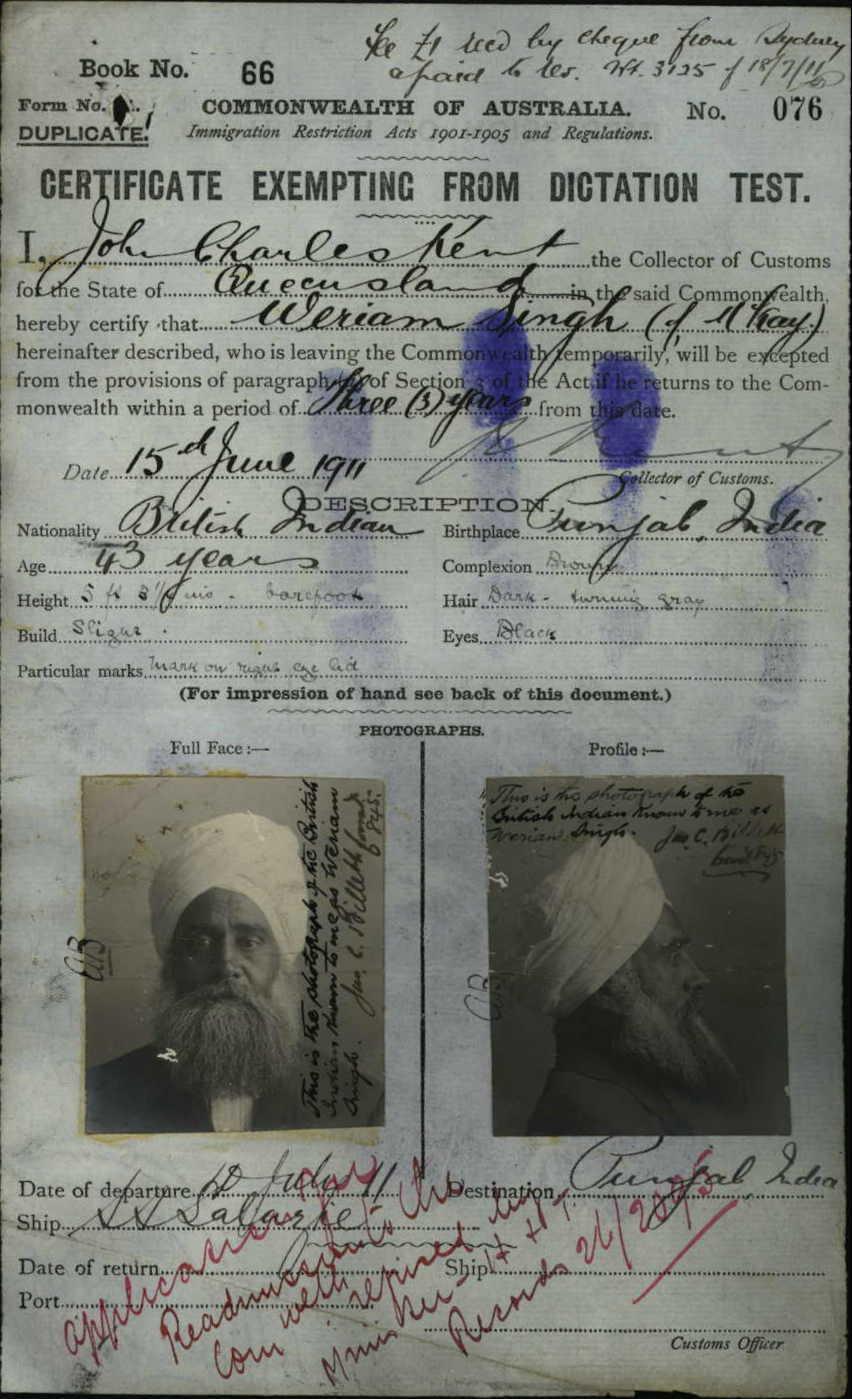 Fee £1 recd by cheque from Sydney
Book No. 66
& paid to rev. 18/7/11
Form No.
COMMONWEALTH OF AUSTRALIA.
No. 076
DUPLICATE.
Immigration Restriction Acts 1901-1905 and Regulations.
CERTIFICATE EXEMPTING FROM DICTATION TEST.
I, John Charles Kent the Collector of Customs
for the State of Queensland in the said Commonwealth,
hereby certify that Weriam Singh (of McKay)
hereinafter described, who is leaving the Commonwealth temporarily, will be excepted
from the provisions of paragraph of Section 3 of the Act if he returns to the Com-
monwealth within a period of three (3) years from this date.
Date 15th June 1911
Collector of Customs.
DESCRIPTION.
Nationality British Indian Birthplace Punjab, India
Age 43 years Complexion Brown
Height 5 ft ins - barefoot Hair Dark - turning gray
Build Slight. Eyes Black
Particular marks Mark on right eye lid
(For impression of hand see back of this document.)
PHOTOGRAPHS.
Full Face :— Profile :—
This is the photograph of the British
Indian known to me as Weriam
Singh. Jas. C. Billett
This is the photograph of the
British Indian known to me as
Weriam Singh. Jas C. Billett
Date of departure July 11 Destination Punjab India
Ship SS
Date of return Ship
Port
Application for
Readmission to the
Comwealth refused by
Minister
Records
Customs Officer